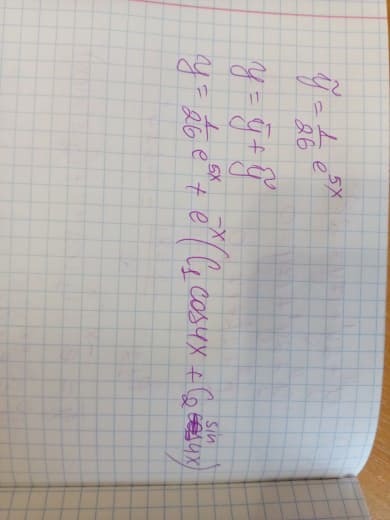 ỹ = 1/26 e^5x
y = ȳ + ỹ
y = 1/26 e^5x + e^-x (C₁ cos4x + C₂ sin 4x)